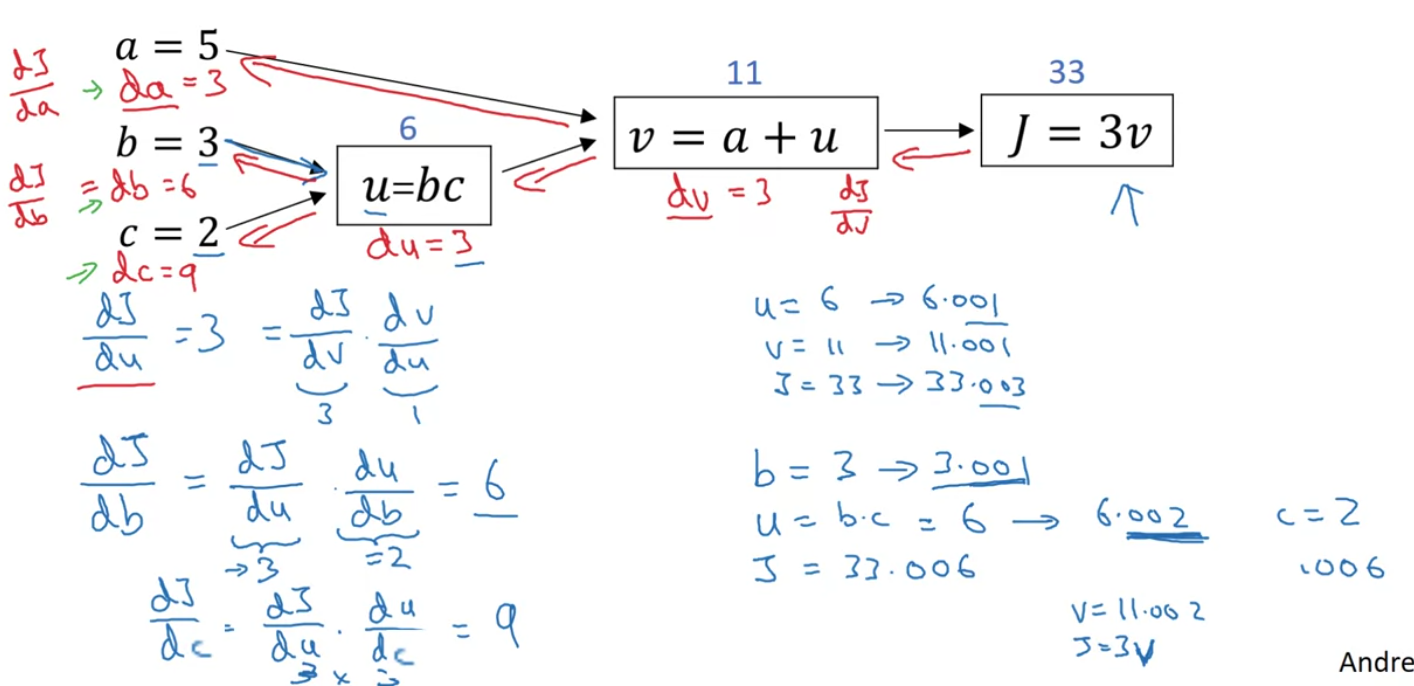 a = 5
dJ/da → da = 3
b = 3
dJ/db = db = 6
c = 2
→ dc = 9
6
u=bc
du = 3
11
v = a + u
dv = 3 dJ/dv
33
J = 3v
↑
dJ/du = 3 = dJ/dv · dv/du
3 1
dJ/db = dJ/du · du/db = 6
→ 3 = 2
dJ/dc = dJ/du · du/dc = 9
3 × 3
u = 6 → 6.001
v = 11 → 11.001
J = 33 → 33.003
b = 3 → 3.001
u = b·c = 6 → 6.002 c = 2
J = 33.006 .006
v = 11.002
J = 3v
Andre